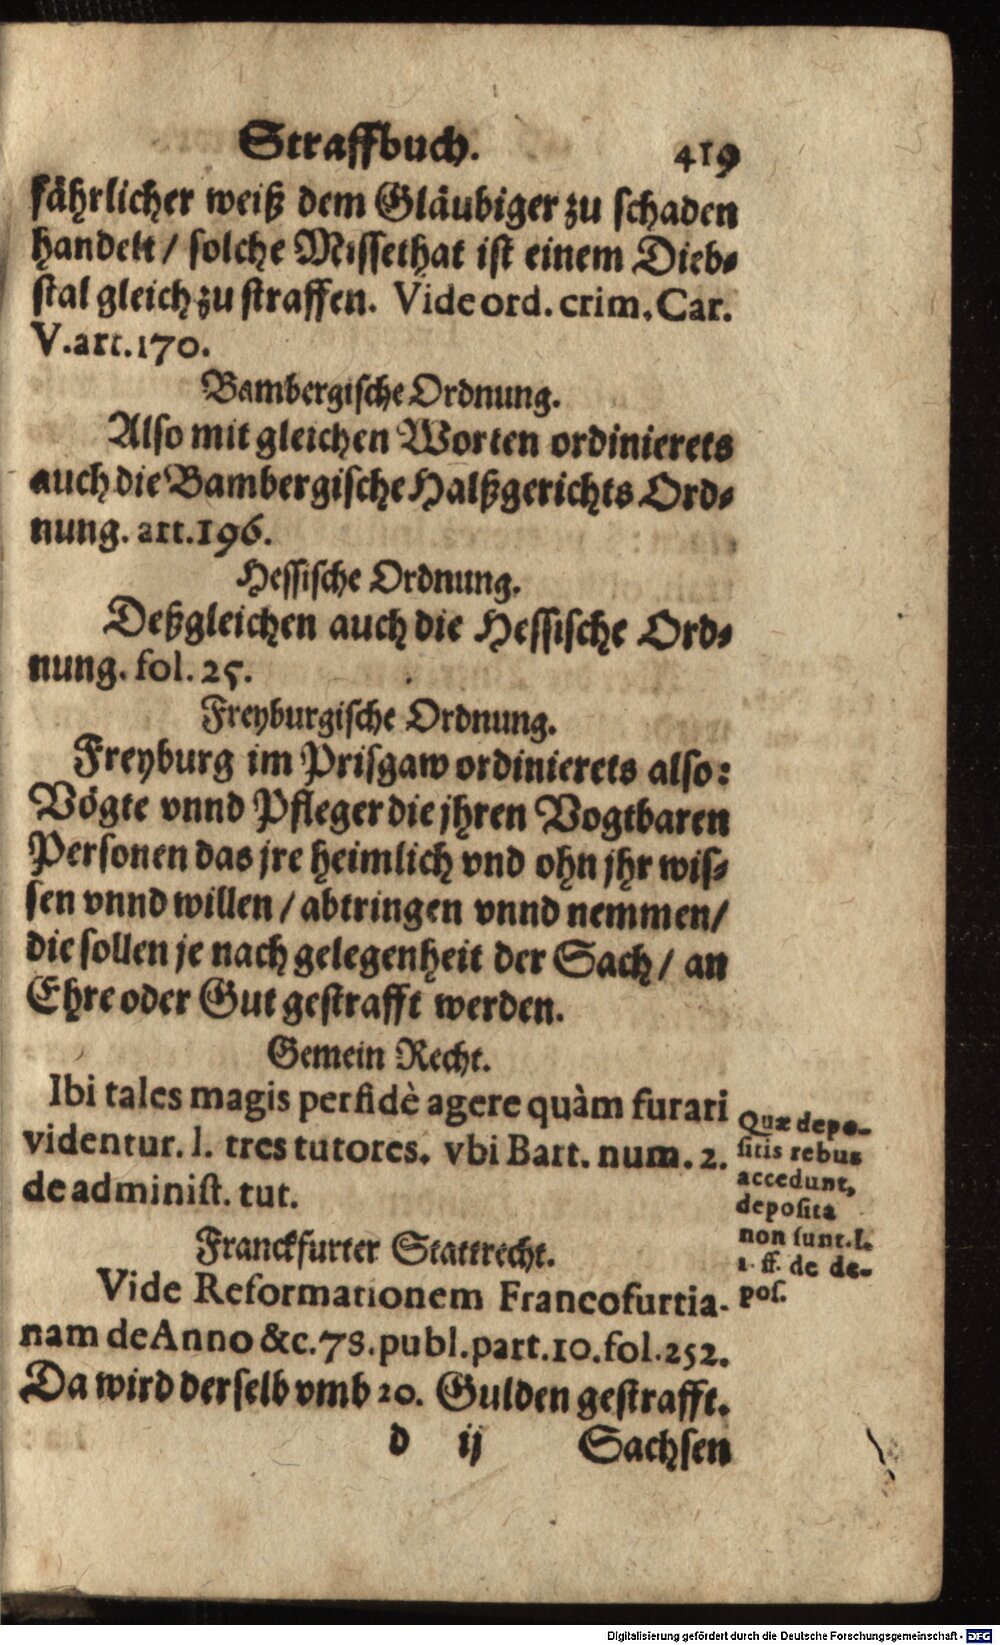 Straffbuch. 419
fährlicher weiß dem Gläubiger zu schaden
handelt / solche Missethat ist einem Dieb-
stal gleich zu straffen. Vide ord. crim. Car.
V. art. 170.
Bambergische Ordnung.
Also mit gleichen Worten ordinierets
auch die Bambergische Halßgerichts Ord-
nung. art. 196.
Hessische Ordnung.
Deßgleichen auch die Hessische Ord-
nung. fol. 25.
Freyburgische Ordnung.
Freyburg im Prisgaw ordinierets also:
Vögte vnnd Pfleger die jhren Vogtbaren
Personen das jre heimlich vnd ohn jhr wis-
sen vnnd willen / abtringen vnnd nemmen /
die sollen je nach gelegenheit der Sach / an
Ehre oder Gut gestrafft werden.
Gemein Recht.
Ibi tales magis perfidè agere quàm furari
videntur. l. tres tutores. vbi Bart. num. 2.
de administ. tut.
Quæ depo-
sitis rebus
accedunt,
deposita
non sunt. l.
1. ff. de de-
pos.
Franckfurter Stattrecht.
Vide Reformationem Francofurtia-
nam de Anno &c. 78. publ. part. 10. fol. 252.
Da wird derselb vmb 20. Gulden gestrafft.
d ij Sachsen
Digitalisierung gefördert durch die Deutsche Forschungsgemeinschaft - DFG